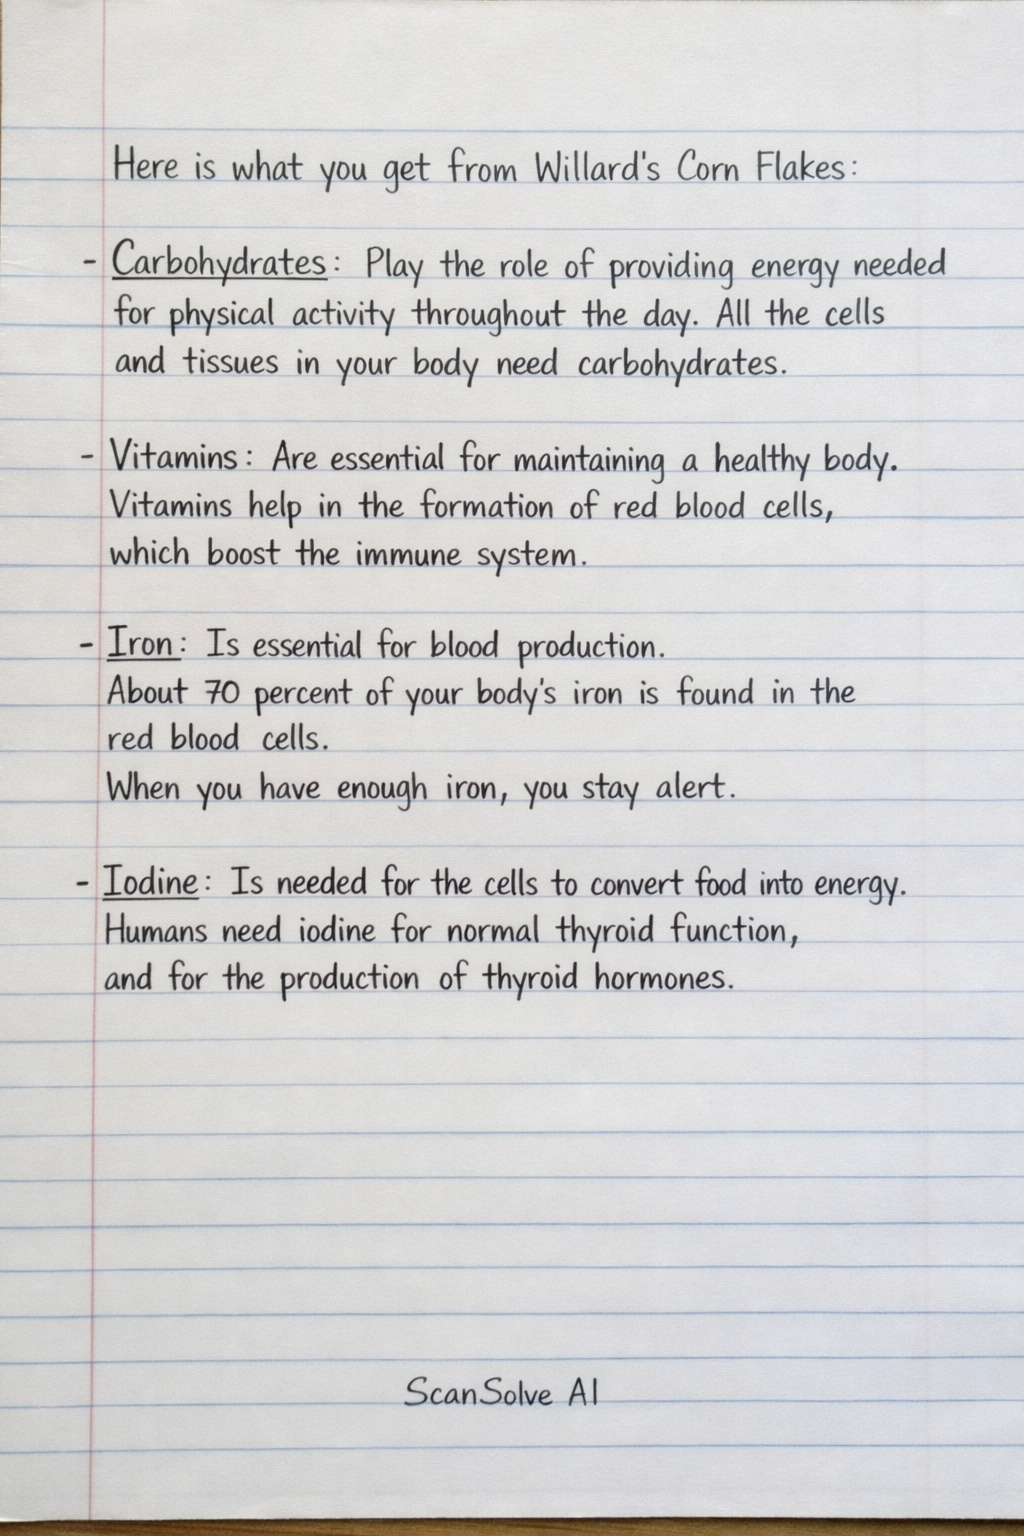 Here is what you get from Willard's Corn Flakes:
- Carbohydrates: Play the role of providing energy needed
for physical activity throughout the day. All the cells
and tissues in your body need carbohydrates.
- Vitamins: Are essential for maintaining a healthy body.
Vitamins help in the formation of red blood cells,
which boost the immune system.
- Iron: Is essential for blood production.
About 70 percent of your body's iron is found in the
red blood cells.
When you have enough iron, you stay alert.
- Iodine: Is needed for the cells to convert food into energy.
Humans need iodine for normal thyroid function,
and for the production of thyroid hormones.
ScanSolve AI